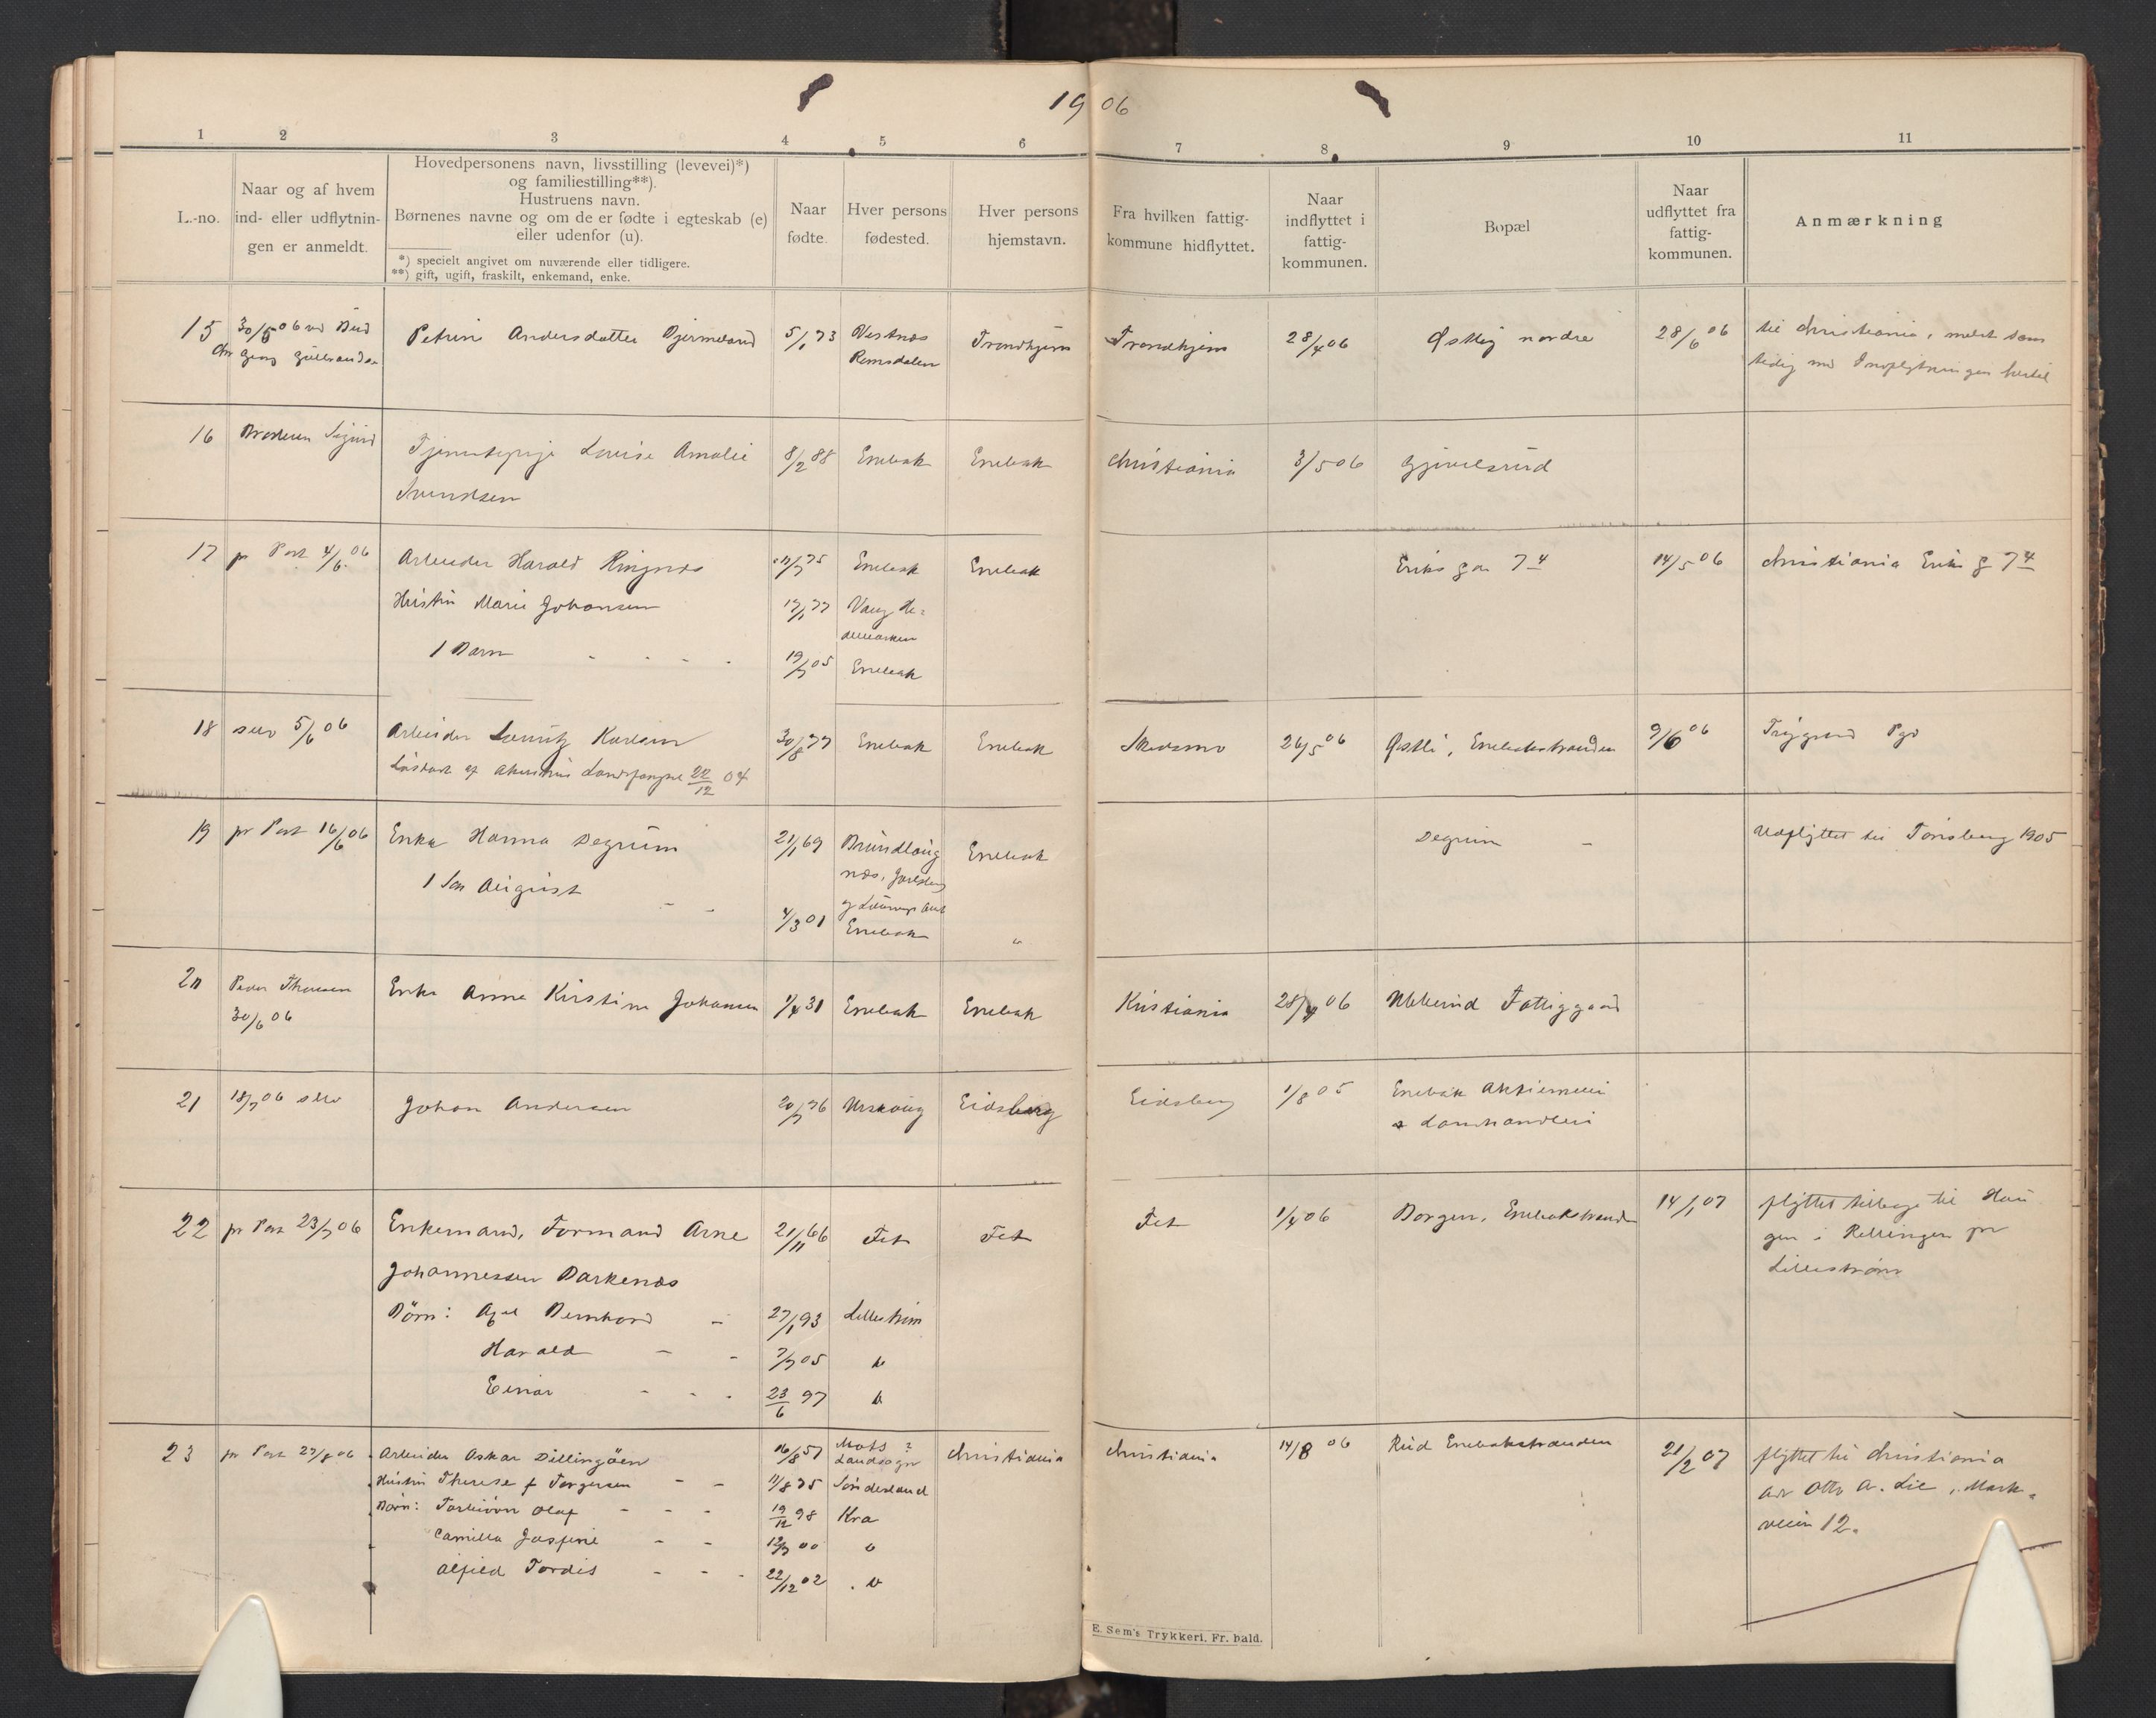 1906
1 2 3 4 5 6 7 8 9 10 11
L.-no.
Naar og af hvem
ind- eller udflytnin-
gen er anmeldt.
Hovedpersonens navn, livsstilling (levevei)*)
og familiestilling**).
Hustruens navn.
Børnenes navne og om de er fødte i egteskab (e)
eller udenfor (u).
*) specielt angivet om nuværende eller tidligere.
**) gift, ugift, fraskilt, enkemand, enke.
Naar
fødte.
Hver persons
fødested.
Hver persons
hjemstavn.
Fra hvilken fattig-
kommune hidflyttet.
Naar
indflyttet i
fattig-
kommunen.
Bopæl
Naar
udflyttet fra
fattig-
kommunen.
Anmærkning
15
30/5 06 ved Bud
Petrine Andersdatter
5/1 73
Vestnæs
Romsdalen
Trondhjem
Trondhjem
28/4 06
Østby nordre
28/6 06
til Christiania, meldt sam
tidig med Indflytningen hertil
16
Broderen Sigurd
Tjenestepige Lovise Amalie
Svendsen
8/2 88
Enebak
Enebak
Christiania
3/5 06
Gjivelsrud
17
pr Post 4/6 06
Arbeider Harald Ringnæs
Hustru Marie Johansen
1 Barn
75
Enebak
Enebak
17/1 77
Vang He=
demarken
19/7 05
Enebak
Eriks ga 7 4
14/5 06
Christiania Eriks g 7 4
18
selv 5/6 06
Arbeider Lauritz Karlsen
Løsladt af Akershus Landsfængsel 22/12 04
30/8 77
Enebak
Enebak
Skedsmo
26/5 06
Østli, Enebakstranden
9/6 06
Trygstad Pgd
19
pr Post 16/6 06
Enke Hanna Degrum
1 Søn August
21/1 69
Brundlaug
næs, Jarlsberg
og Laurvigs Amt
Enebak
4/3 01
Enebak
"
Degrum
Udflyttet til Tønsberg 1905
20
Peder Thoresen
30/6 06
Enke Anne Kirstine Johansen
1/4 31
Enebak
Enebak
Kristiania
28/4 06
Ekkerud Fattiggaard
21
18/7 06 selv
Johan Andersen
20/7 76
Urskoug
Eidsberg
Eidsberg
1/8 05
Enebak Aktiemeieri
& Landhandleri
22
pr Post 23/7 06
Enkemand, Formand Arne
Johannessen Barkenæs
21/11 66
Fet
Fet
Børn: Axel Bernhard
27/1 93
Lillestrøm
Harald
7/7 05
do
Einar
23/6 97
do
Fet
1/4 06
Borgen, Enebakstranden
14/1 07
flyttet tilbage til Hau
gen i Rellingen pr
Lillestrøm
23
pr Post 27/8 06
Arbeider Oskar Dillingøen
Hustru Therese f Torgersen
Børn: Torbiørn Olaf
Camilla Josefine
Alfild Tordis
16/8 57
Mots ?
Landsogn
Christiania
11/8 75
Sønderland
19/12 98
Kra
00
do
22/12 02
do
Christiania
14/8 06
Rud Enebakstranden
21/2 07
flyttet til Christiania
adr Otto A. Lie, Mark=
veien 12.
E. Sem's Trykkeri, Fr. hald.